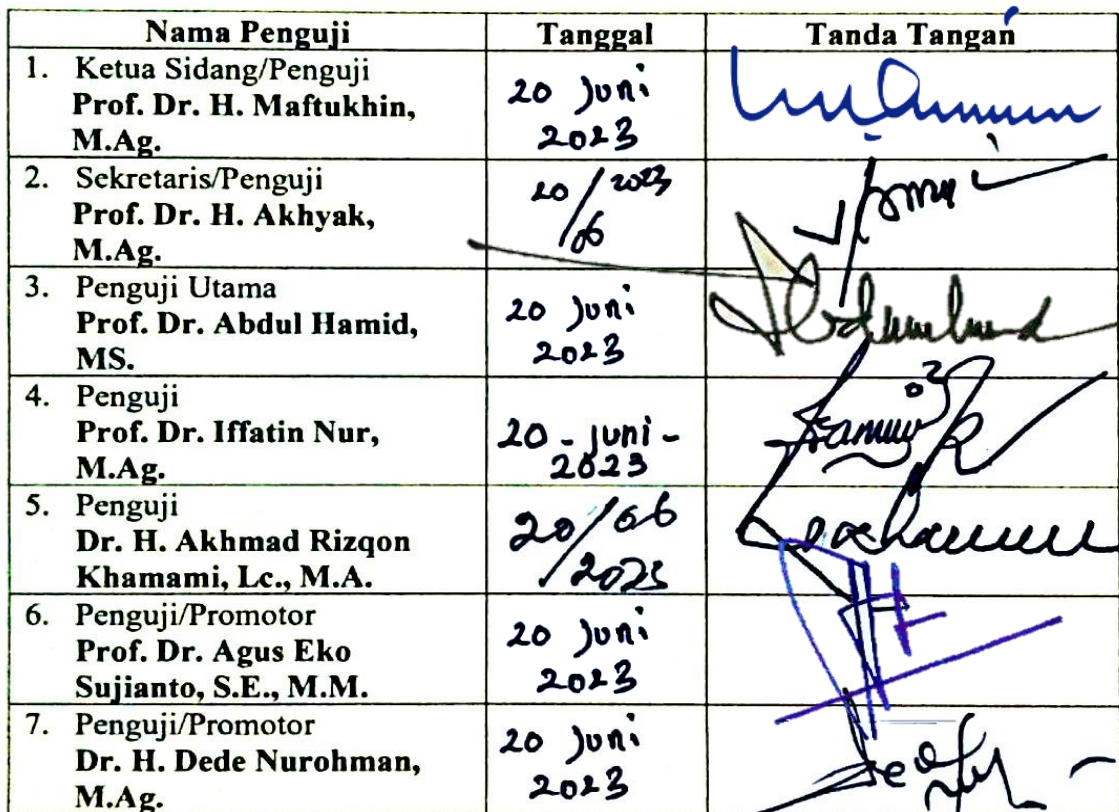 Nama Penguji Tanggal Tanda Tangan
1. Ketua Sidang/Penguji
Prof. Dr. H. Maftukhin,
M.Ag.
20 Juni
2023
2. Sekretaris/Penguji
Prof. Dr. H. Akhyak,
M.Ag.
20/06 2023
3. Penguji Utama
Prof. Dr. Abdul Hamid,
MS.
20 Juni
2023
4. Penguji
Prof. Dr. Iffatin Nur,
M.Ag.
20 - Juni -
2023
5. Penguji
Dr. H. Akhmad Rizqon
Khamami, Lc., M.A.
20/06
/2023
6. Penguji/Promotor
Prof. Dr. Agus Eko
Sujianto, S.E., M.M.
20 Juni
2023
7. Penguji/Promotor
Dr. H. Dede Nurohman,
M.Ag.
20 Juni
2023